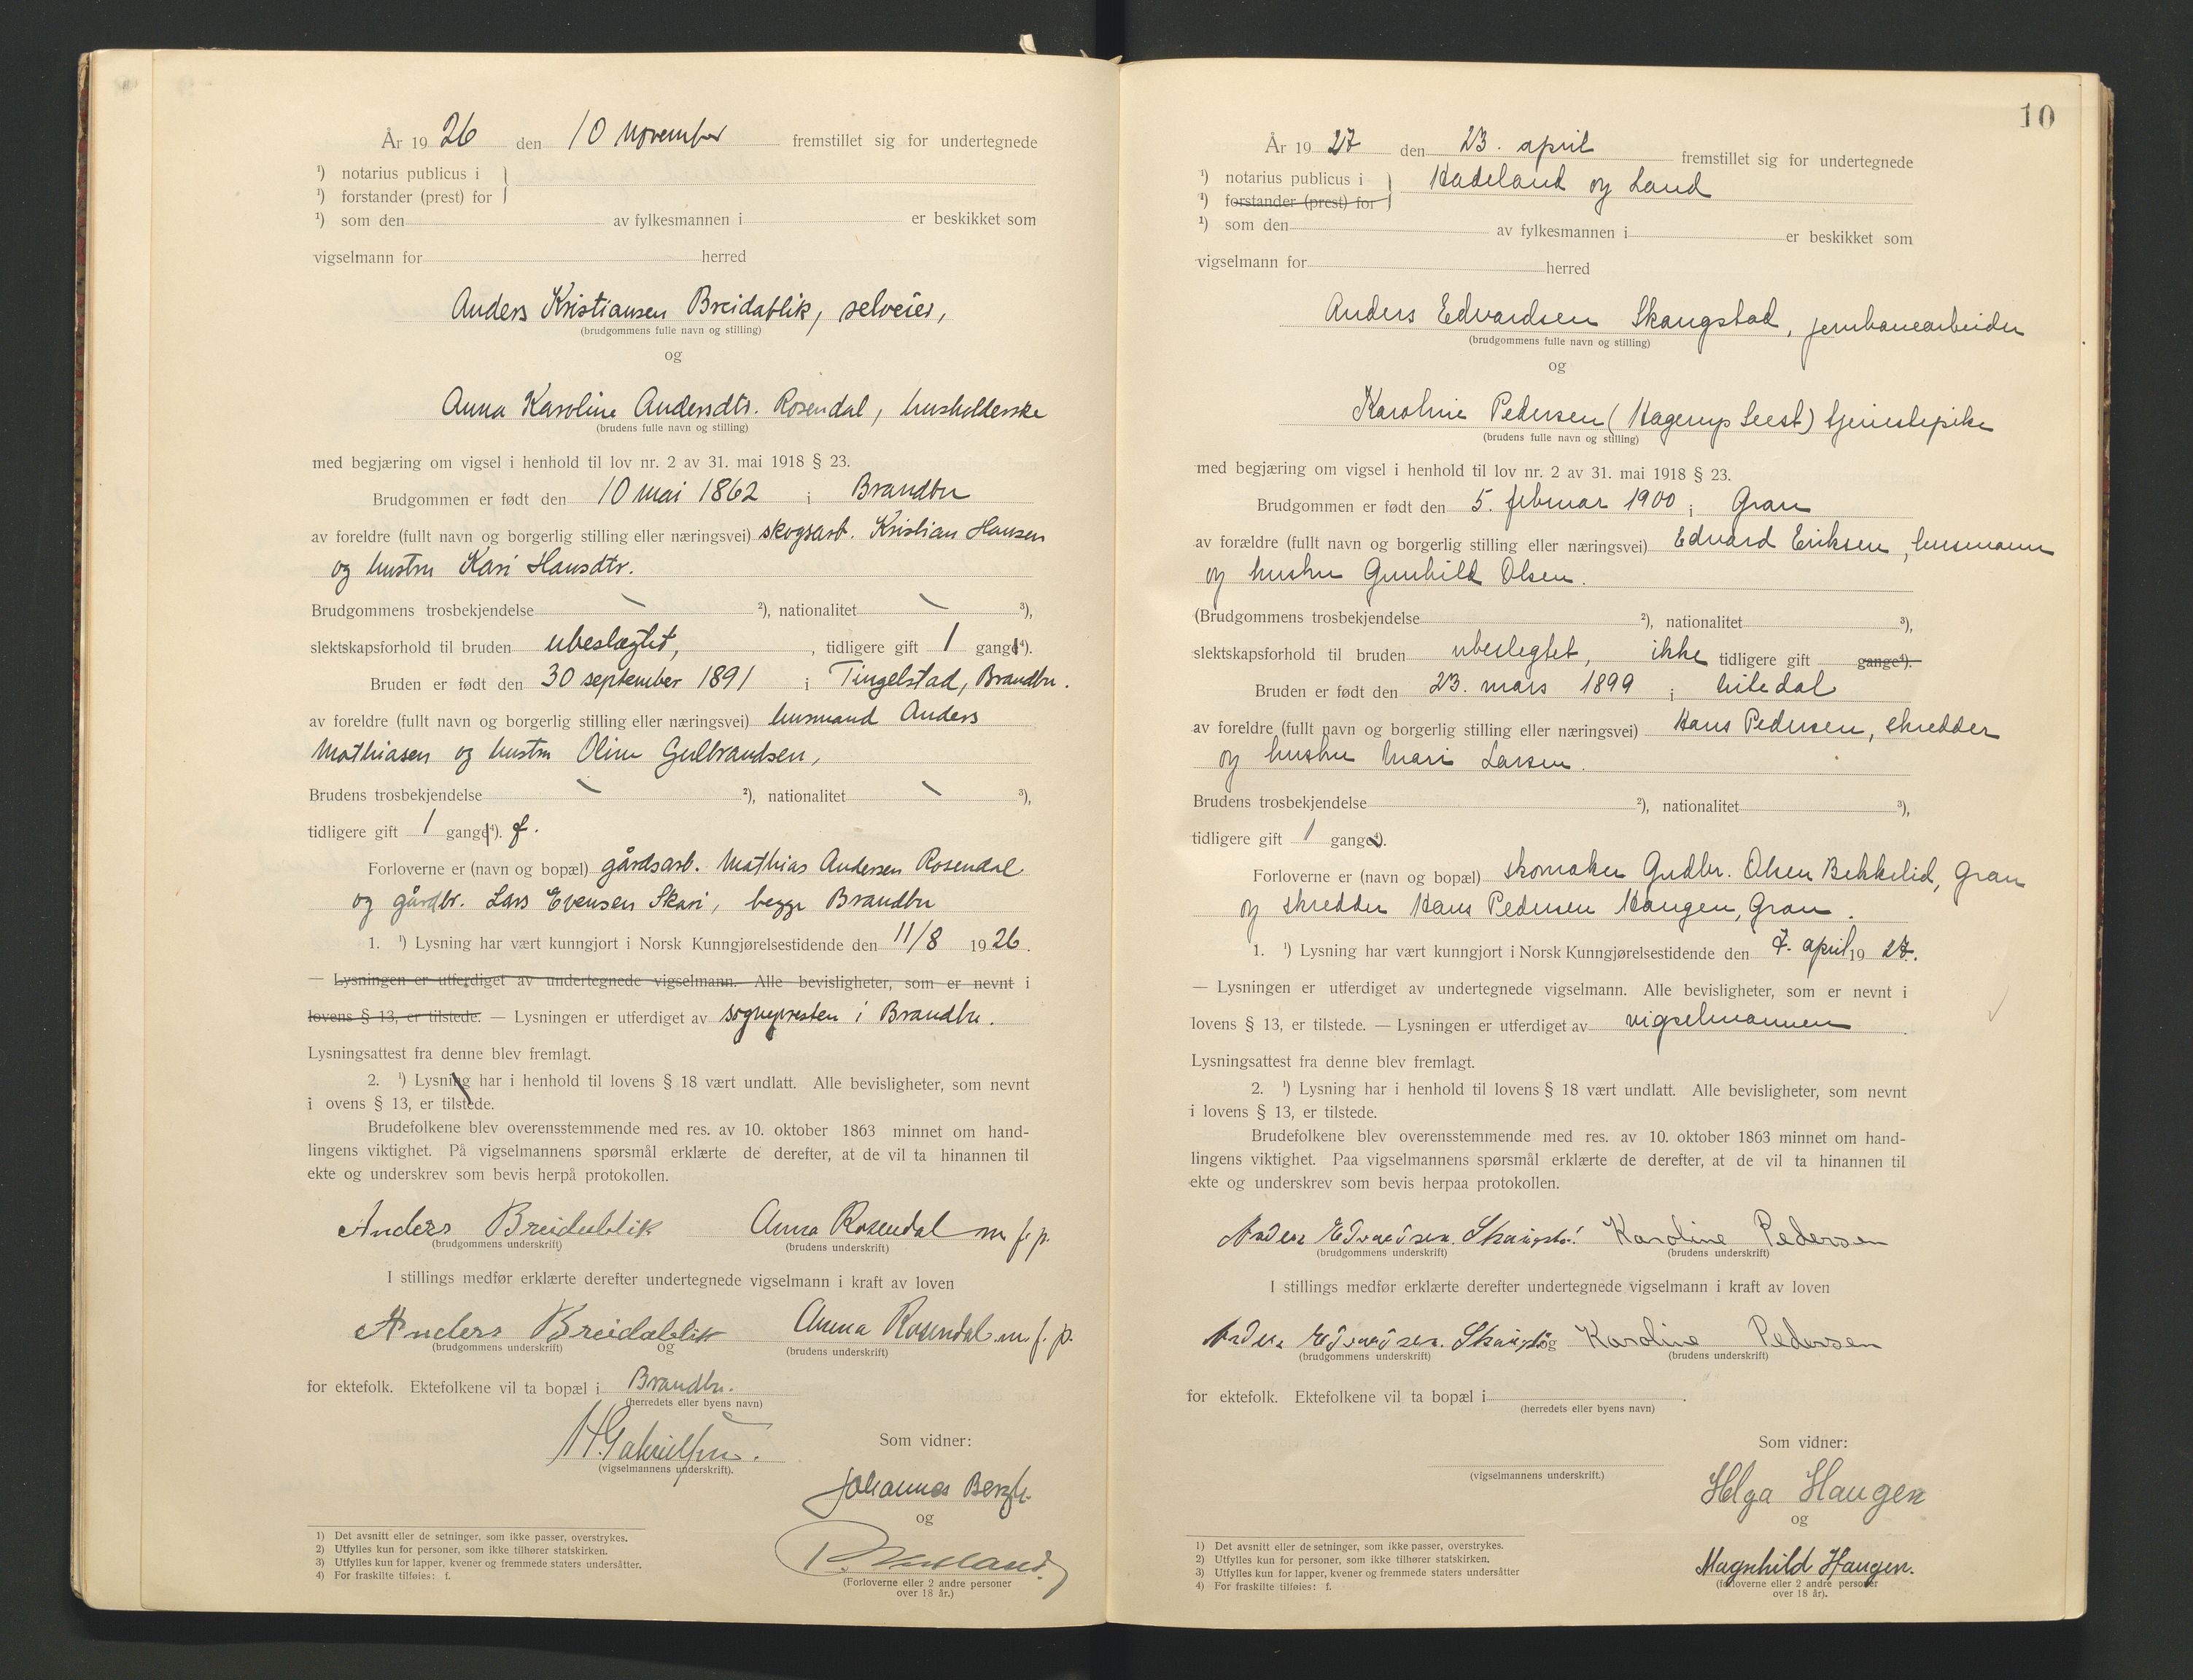 År 1926 den 10 november fremstillet sig for undertegnede
¹) notarius publicus i
¹) forstander (prest) for
¹) som den av fylkesmannen i er beskikket som
vigselmann for herred
Anders Kristiansen Breidablik, selveier,
(brudgommens fulle navn og stilling)
og
Anna Karoline Andersdtr. Rosendal, husholderske
(brudens fulle navn og stilling)
med begjæring om vigsel i henhold til lov nr. 2 av 31. mai 1918 § 23.
Brudgommen er født den 10 mai 1862 i Brandbu
av foreldre (fullt navn og borgerlig stilling eller næringsvei) skogsarb. Kristian Hansen
og hustru Kari Hansdtr.
Brudgommens trosbekjendelse ²), nationalitet ³),
slektskapsforhold til bruden ubeslægtet, , tidligere gift 1 gang⁴).
Bruden er født den 30 september 1891 i Tingelstad, Brandbu.
av foreldre (fullt navn og borgerlig stilling eller næringsvei) husmand Anders
Mathiasen og hustru Oline Gulbrandsen,
Brudens trosbekjendelse ²), nationalitet ³),
tidligere gift 1 gang⁴). f.
Forloverne er (navn og bopæl) gårdsarb. Mathias Andersen Rosendal
og gårdbr. Lars Evensen Skari, begge Brandbu
1. ¹) Lysning har vært kunngjort i Norsk Kunngjørelsestidende den 11/8 1926.
— Lysningen er utferdiget av undertegnede vigselmann. Alle bevisligheter, som er nevnt i
lovens § 13, er tilstede. — Lysningen er utferdiget av sognepresten i Brandbu.
Lysningsattest fra denne blev fremlagt.
2. ¹) Lysning har i henhold til lovens § 18 vært undlatt. Alle bevisligheter, som nevnt
i ovens § 13, er tilstede.
Brudefolkene blev overensstemmende med res. av 10. oktober 1863 minnet om hand-
lingens viktighet. På vigselmannens spørsmål erklærte de derefter, at de vil ta hinannen til
ekte og underskrev som bevis herpå protokollen.
Anders Breidablik Anna Rosendal m. f. p.
(brudgommens underskrift) (brudens underskrift)
I stillings medfør erklærte derefter undertegnede vigselmann i kraft av loven
Anders Breidablik og Anna Rosendal m. f. p.
(brudgommens underskrift) (brudens underskrift)
for ektefolk. Ektefolkene vil ta bopæl i Brandbu.
(herredets eller byens navn)
(vigselmannens underskrift).
Som vidner:
Johannes
og
(Forloverne eller 2 andre personer
over 18 år.)
1) Det avsnitt eller de setninger, som ikke passer, overstrykes.
2) Utfylles kun for personer, som ikke tilhører statskirken.
3) Utfylles kun for lapper, kvener og fremmede staters undersåtter.
4) For fraskilte tilføies: f.
10
År 1927 den 23. april fremstillet sig for undertegnede
¹) notarius publicus i Hadeland og Land
¹) forstander (prest) for
¹) som den av fylkesmannen i er beskikket som
vigselmann for herred
Anders Edvardsen Skaugstad, jernbanearbeider
(brudgommens fulle navn og stilling)
og
Karoline Pedersen (Hagerup Seest) tjenestepike
(brudens fulle navn og stilling)
med begjæring om vigsel i henhold til lov nr. 2 av 31. mai 1918 § 23.
Brudgommen er født den 5. februar 1900 i Gran
av forældre (fullt navn og borgerlig stilling eller næringsvei) Edvard Eriksen, husmann
og hustru Gunhild Olsen.
(Brudgommens trosbekjendelse ²), nationalitet ³),
slektskapsforhold til bruden ubeslegtet, ikke tidligere gift gange⁴).
Bruden er født den 23. mars 1899 i
av foreldre (fullt navn og borgerlig stilling eller næringsvei) Hans Pedersen, skredder
og hustru Mari Larsen.
Brudens trosbekjendelse ²), nationalitet ³),
tidligere gift 1 gang⁴).
Forloverne er (navn og bopæl) skomaker Gudbr. Olsen Bekkelid, Gran
og skredder Hans Pedersen Haugen, Gran.
1. ¹) Lysning har vært kunngjort i Norsk Kunngjørelsestidende den 7. april 1927.
— Lysningen er utferdiget av undertegnede vigselmann. Alle bevisligheter, som er nevnt i
lovens § 13, er tilstede. — Lysningen er utferdiget av vigselmannen
Lysningsattest fra denne blev fremlagt.
2. ¹) Lysning har i henhold til lovens § 18 vært undlatt. Alle bevisligheter, som nevnt
i lovens § 13, er tilstede.
Brudefolkene blev overensstemmende med res. av 10. oktober 1863 minnet om hand-
lingens viktighet. Paa vigselmannens spørsmål erklærte de derefter, at de vil ta hinannen til
ekte og underskrev som bevis herpaa protokollen.
Anders Edvardsen. Skaugsta Karoline Pedersen
(brudgommens underskrift) (brudens underskrift)
I stillings medfør erklærte derefter undertegnede vigselmann i kraft av loven
Anders Edvardsen. Skaugst og Karoline Pedersen
(brudgommens underskrift) (brudens underskrift)
for ektefolk. Ektefolkene vil ta bopæl i .
(herredets eller byens navn)
Som vidner:
(vigselmannens underskrift.)
Helga Haugen
og
Magnhild Haugen.
(forloverne eller 2 andre personer
over 18 år).
1) Det avsnitt eller de setninger, som ikke passer, overstrykes.
2) Utfylles kun for personer, som ikke tilhører statskirken.
3) Utfylles kun for lapper, kvener og fremmede staters undersåtter
4) For fraskilte tilføies: f.